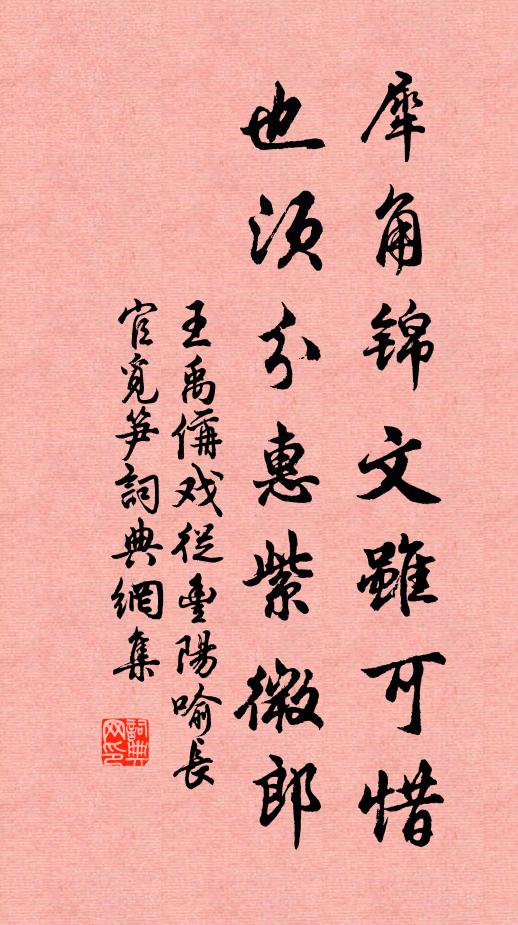 犀角錦文雖可惜
也須分惠紫微郎
王禹偁戏從豊陽喻長
官覓笋詞典網集
詞典網印